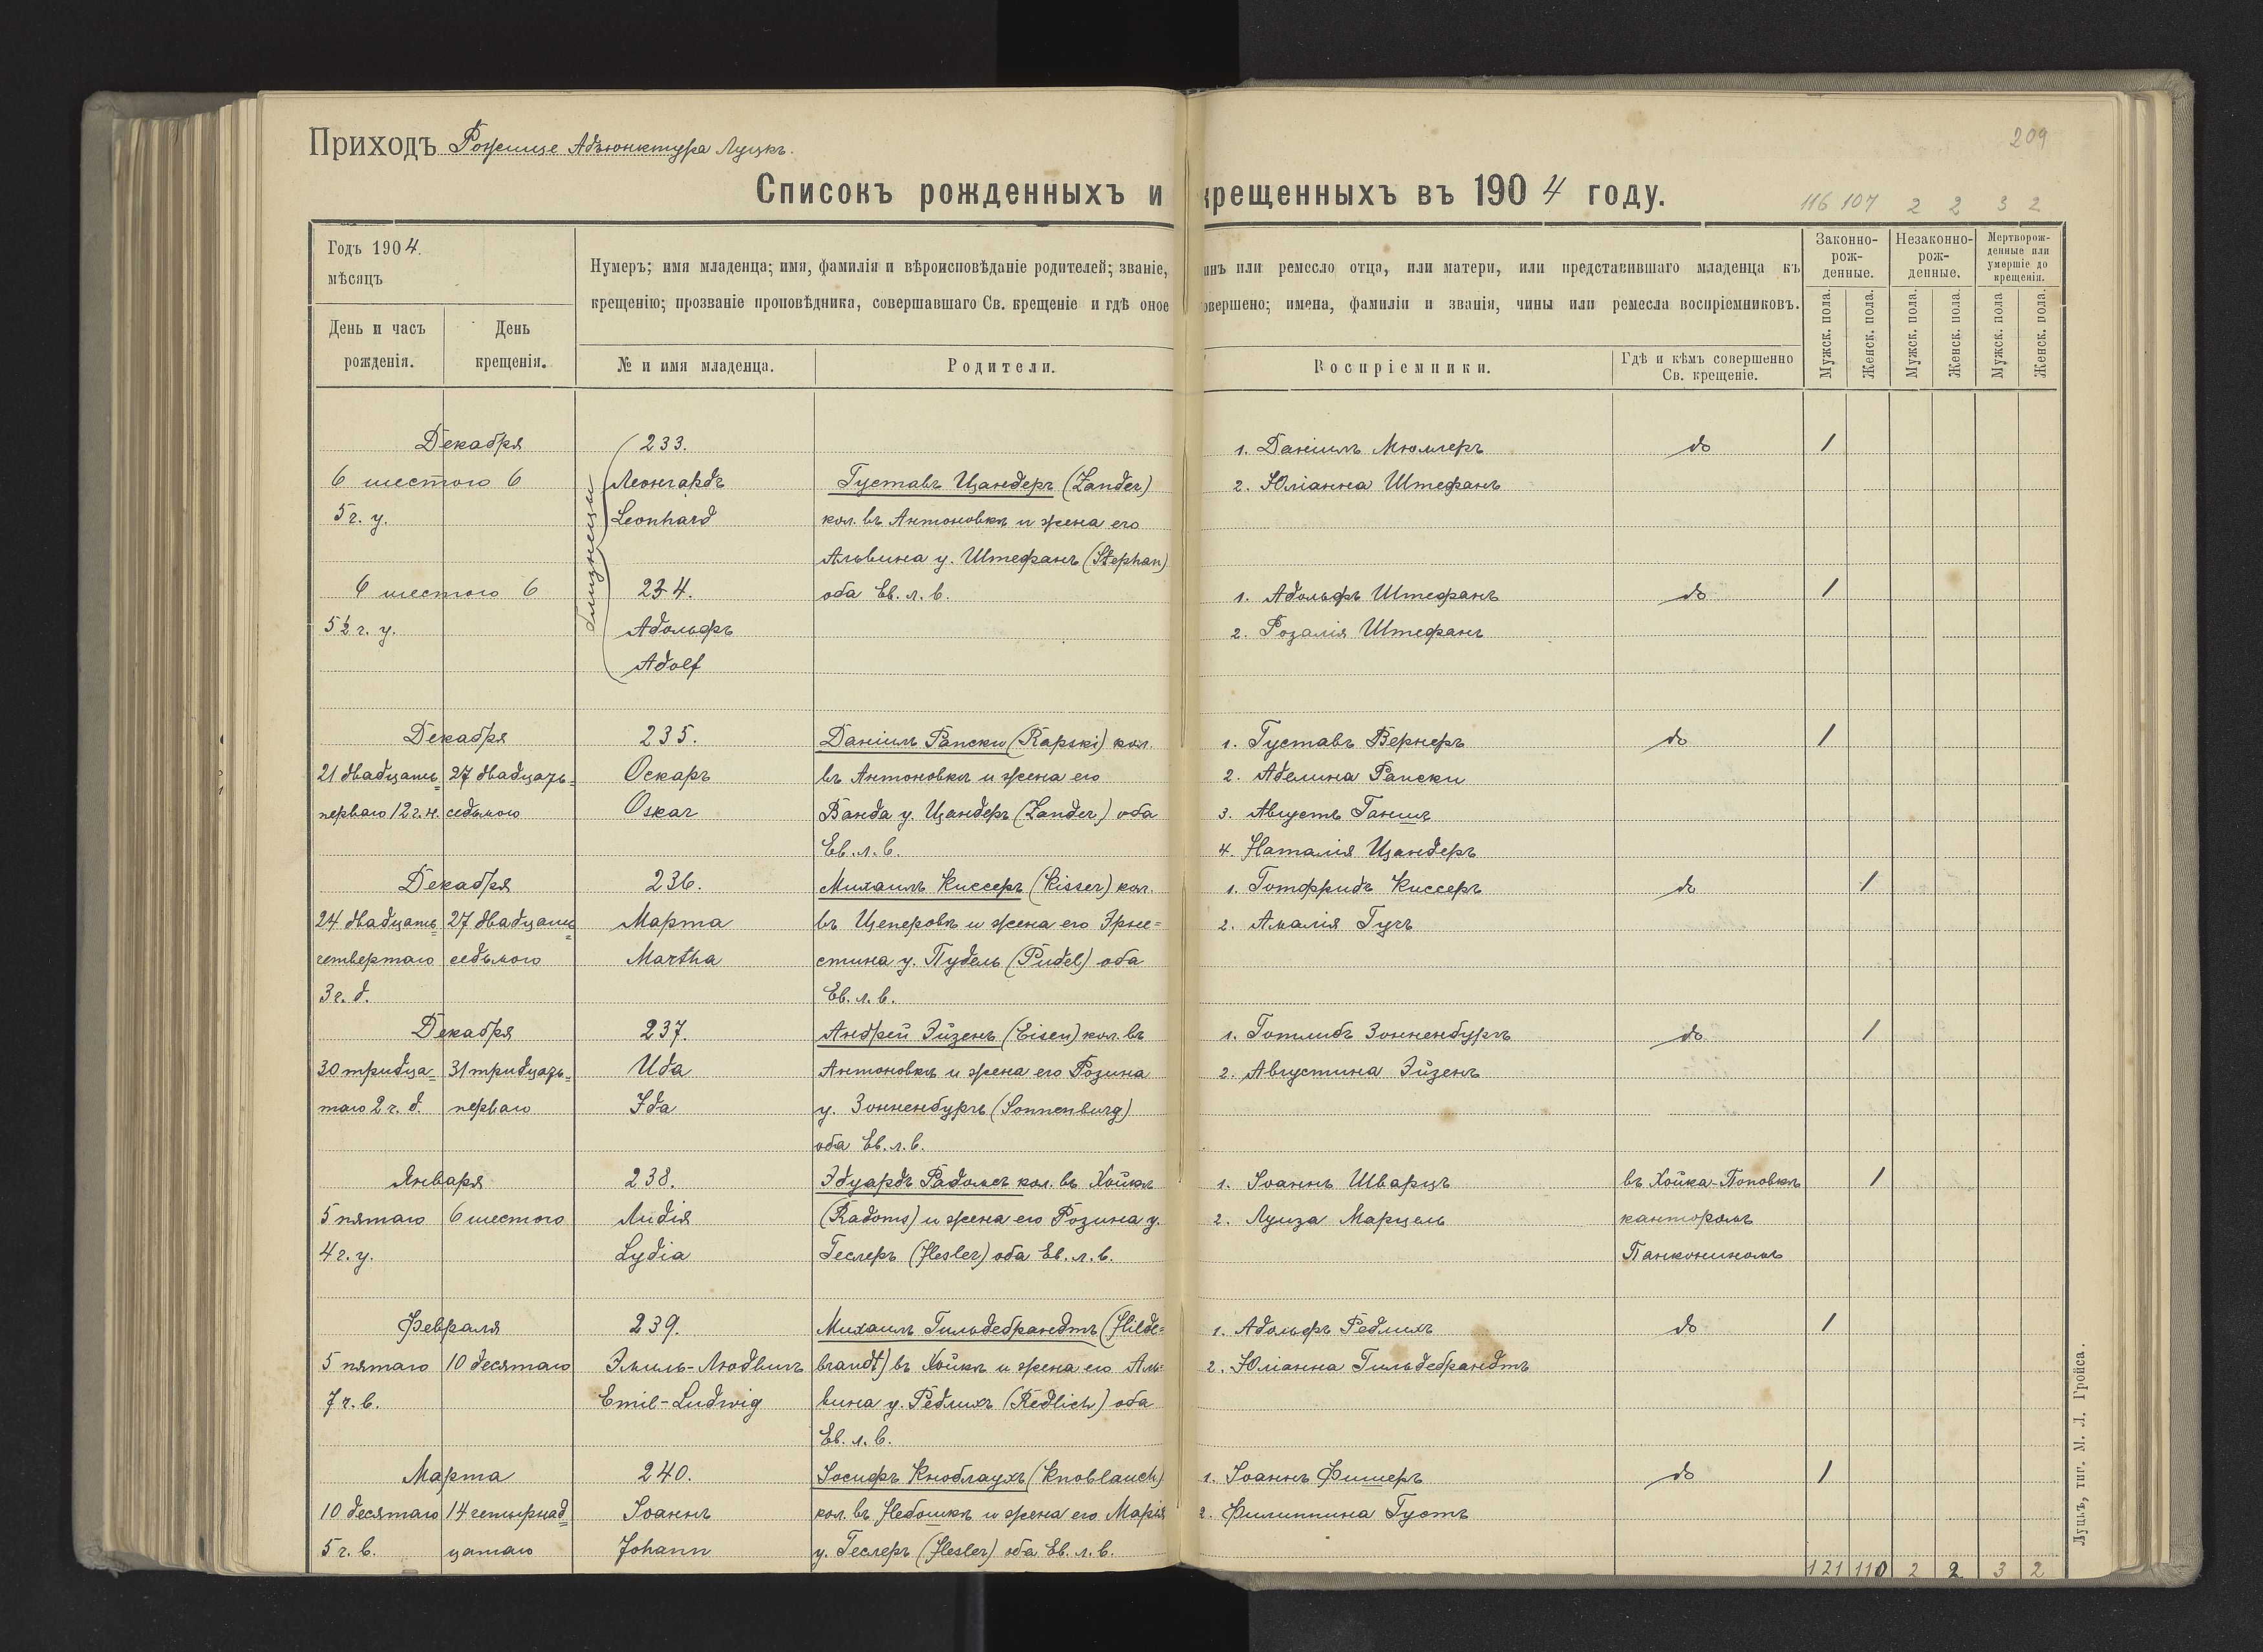 Приходъ Рожище Адъюнктура Луцкъ.
209
Списокъ рожденныхъ и крещенныхъ въ 1904 году.
116 107 2 2 3 2
Годъ 1904.
мѣсяцъ
День и часъ рожденія.
День крещенія.
Нумеръ; имя младенца; имя, фамилія и вѣроисповѣданіе родителей; званіе, чинъ или ремесло отца, или матери, или представившаго младенца къ
крещенію; прозваніе проповѣдника, совершавшаго Св. крещеніе и гдѣ оное совершено; имена, фамиліи и званія, чины или ремесла воспріемниковъ.
№ и имя младенца.
Родители.
Воспріемники.
Гдѣ и кѣмъ совершенно
Св. крещеніе.
Законно-
рож-
денные.
Незаконно-
рож-
денные.
Мертворож-
денные или
умершіе до
крещенія.
Мужск. пола.
Женск. пола.
Мужск. пола.
Женск. пола.
Мужск. пола
Женск. пола.
Декабря 233. 1. Даніилъ Мюллеръ до 1
6 шестого 6 Леонгардъ Густавъ Цандеръ (Zander) 2. Юліанна Штефанъ
5 г. у. Leonhard кол. въ Антоновкѣ и жена его
Альвина у. Штефанъ (Stephan)
близнецы
6 шестого 6 234. оба Ев. л. в. 1. Адольфъ Штефанъ до 1
5½ г. у. Адольфъ 2. Розалія Штефанъ
Adolf
Декабря 235. Даніилъ Рапски (Rapski) кол. 1. Густавъ Вернеръ до 1
21 двадцать 27 двадцать= Оскаръ въ Антоновкѣ и жена его 2. Аделина Рапски
перваго 12 г. н. седьмого Oskar Ванда у. Цандеръ (Zander) оба 3. Августъ Ганшъ
Ев. л. в. 4. Наталія Цандеръ
Декабря 236. Михаилъ Киссеръ (Kisser) кол. 1. Готфридъ Киссеръ до 1
24 двадцать 27 двадцать Марта въ Цеперовкѣ и жена его Эрне= 2. Амалія Гучъ
четвертаго седьмого Martha стина у. Пудель (Pudel) оба
3 г. д. Ев. л. в.
Декабря 237. Андрей Эйзенъ (Eisen) кол. въ 1. Готлибъ Зонненбургъ до 1
30 тридца= 31 тридцать= Ида Антоновкѣ и жена его Розина 2. Августина Эйзенъ
таго 2 г. д. перваго Ida у. Зонненбургъ (Sonnenburg)
оба Ев. л. в.
Января 238. Эдуардъ Радомсъ кол. въ Хойкѣ 1. Іоаннъ Шварцъ въ Хойка-Поповкѣ 1
5 пятаго 6 шестого Лидія (Radoms) и жена его Розина у. 2. Луиза Марцель канторомъ
4 г. у. Lydia Геслеръ (Hesler) оба Ев. л. в. Панкониномъ
Февраля 239. Михаилъ Гильдебрандтъ (Hilde= 1. Адольфъ Редлихъ до 1
5 пятаго 10 десятаго Эмиль-Людвигъ brandt) въ Хойкѣ и жена его Аль= 2. Юліанна Гильдебрандтъ
7 г. в. Emil-Ludwig вина у. Редлихъ (Redlich) оба
Ев. л. в.
Марта 240. Іосифъ Кноблаухъ (Knoblauch) 1. Іоаннъ Фишеръ до 1
10 десятаго 14 четырнад= Іоаннъ кол. въ Небошкѣ и жена его Марія 2. Филиппина Густъ
5 г. в. цатаго Johann у. Геслеръ (Hesler) оба Ев. л. в.
121 110 2 2 3 2
Луцкъ, тип. М. Л. Гройса.